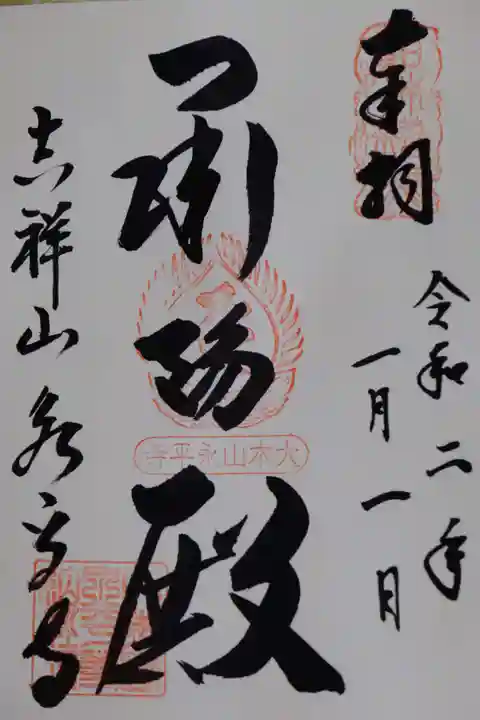 奉拝
令和二年
一月一日
承陽殿
大本山永平寺
吉祥山 永平寺